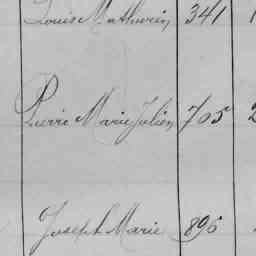 Louis Mathurin 341 1
Pierre Marie Julien 705 2
Joseph Marie 896